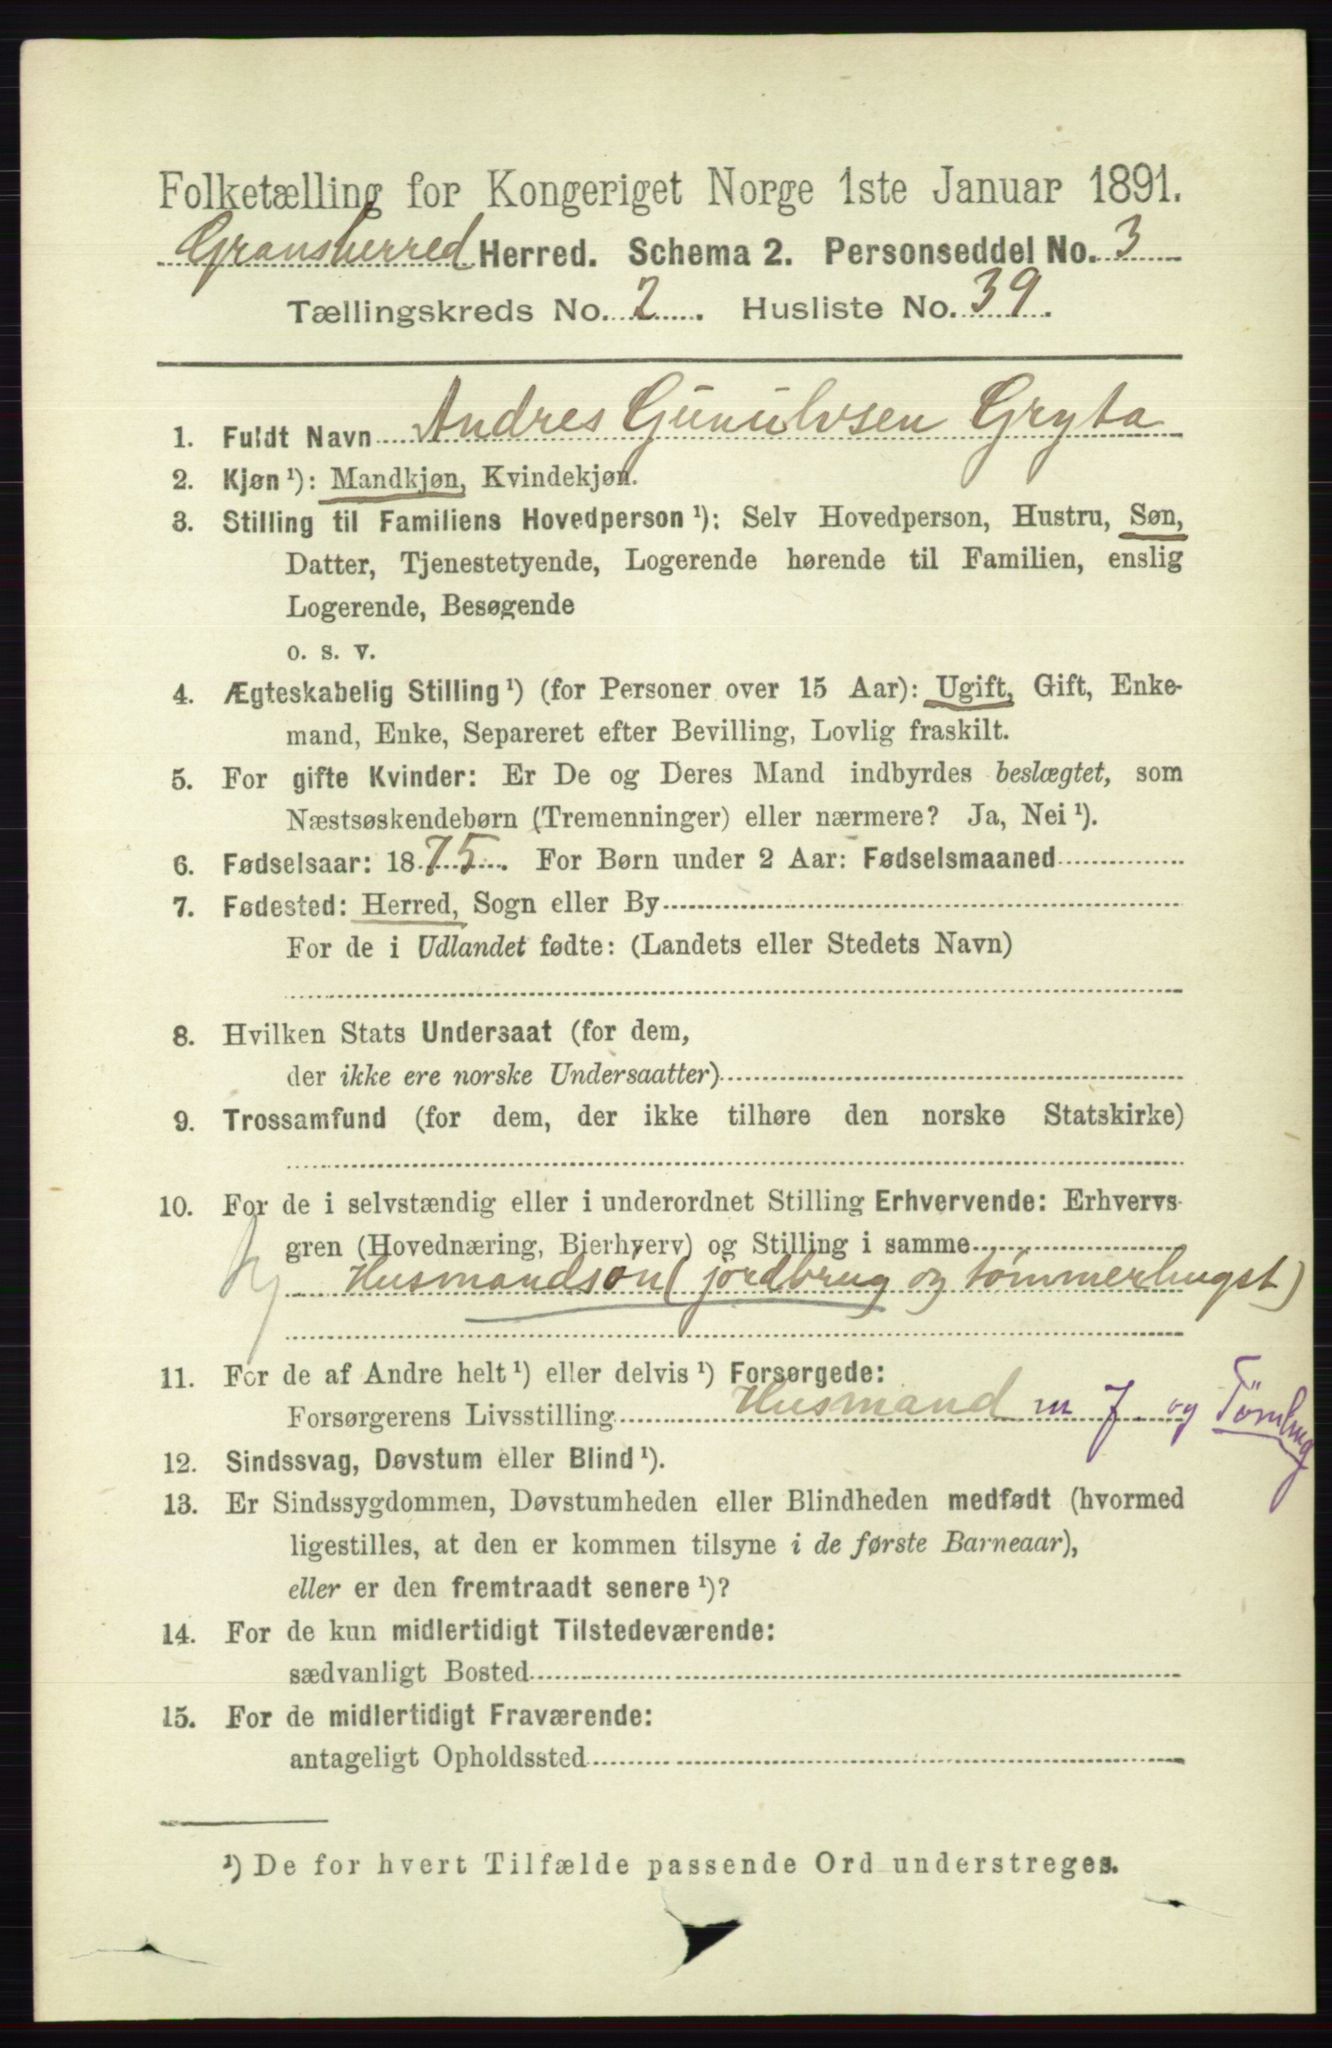 Folketælling for Kongeriget Norge 1ste Januar 1891.
Gransherred Herred. Schema 2. Personseddel No. 3
Tællingskreds No. 2. Husliste No. 39.
1. Fuldt Navn Andres Gunulvsen Gryta
2. Kjøn ¹): Mandkjøn, Kvindekjøn.
3. Stilling til Familiens Hovedperson ¹): Selv Hovedperson, Hustru, Søn,
Datter, Tjenestetyende, Logerende hørende til Familien, enslig
Logerende, Besøgende
o. s. v.
4. Ægteskabelig Stilling ¹) (for Personer over 15 Aar): Ugift, Gift, Enke-
mand, Enke, Separeret efter Bevilling, Lovlig fraskilt.
5. For gifte Kvinder: Er De og Deres Mand indbyrdes beslægtet, som
Næstsøskendebørn (Tremenninger) eller nærmere? Ja, Nei ¹).
6. Fødselsaar: 1875. For Børn under 2 Aar: Fødselsmaaned
7. Fødested: Herred, Sogn eller By
For de i Udlandet fødte: (Landets eller Stedets Navn)
8. Hvilken Stats Undersaat (for dem,
der ikke ere norske Undersaatter)
9. Trossamfund (for dem, der ikke tilhøre den norske Statskirke)
10. For de i selvstændig eller i underordnet Stilling Erhvervende: Erhvervs-
gren (Hovednæring, Bierhverv) og Stilling i samme
Husmandsøn (jordbrug og tømmerhugst)
11. For de af Andre helt ¹) eller delvis ¹) Forsørgede:
Forsørgerens Livsstilling Husmand m J. og Tømhug
12. Sindssvag, Døvstum eller Blind ¹).
13. Er Sindssygdommen, Døvstumheden eller Blindheden medfødt (hvormed
ligestilles, at den er kommen tilsyne i de første Barneaar),
eller er den fremtraadt senere ¹)?
14. For de kun midlertidigt Tilstedeværende:
sædvanligt Bosted
15. For de midlertidigt Fraværende:
antageligt Opholdssted
¹) De for hvert Tilfælde passende Ord understreges.